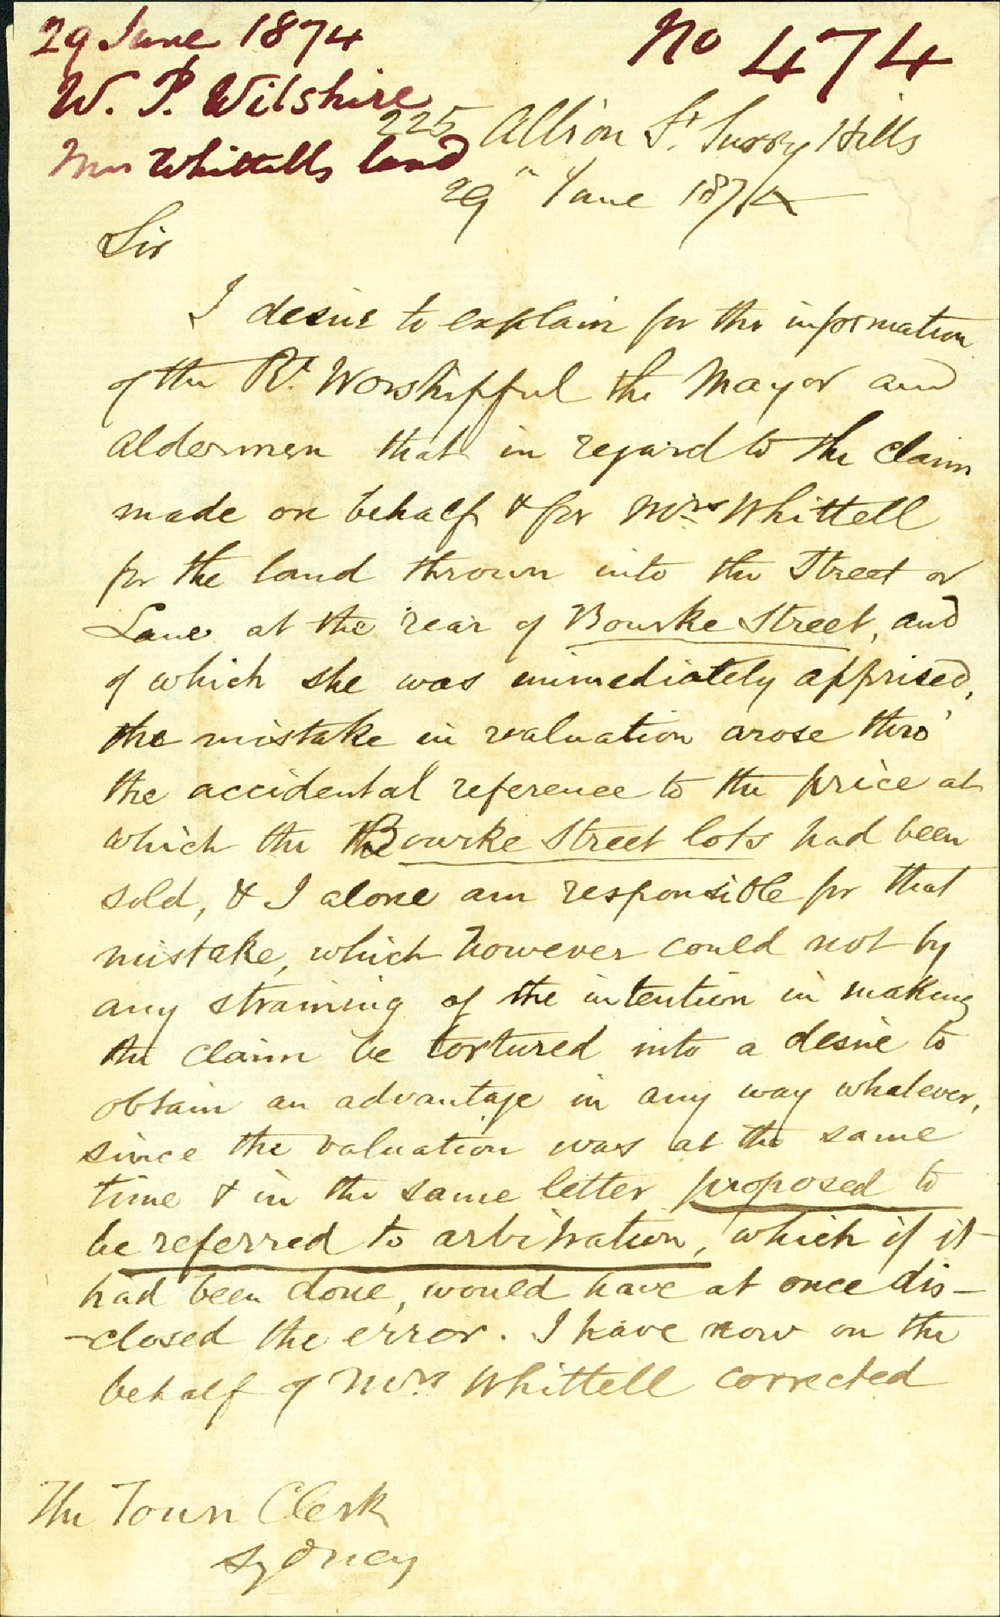 29 June 1874
No 474
W. P. Wilshire
Mrs Whittells land
225 Albion St. Surry Hills
29" June 1874
Sir
I desire to explain for the information
of the Rt. Worshipful the Mayor and
Aldermen that in regard to the claim
made on behalf & for Mrs Whittell
for the land thrown into the Street or
Lane at the rear of Bourke Street, and
of which she was immediately apprised,
the mistake in valuation arose thro'
the accidental reference to the price at
which the Bourke Street lots had been
sold, & I alone am responsible for that
mistake, which however could not by
any straining of the intention in making
the claim be tortured into a desire to
obtain an advantage in any way whatever,
since the valuation was at the same
time & in the same letter proposed to
be referred to arbitration, which if it
had been done, would have at once dis-
-closed the error. I have now on the
behalf of Mrs Whittell corrected
The Town Clerk
Sydney